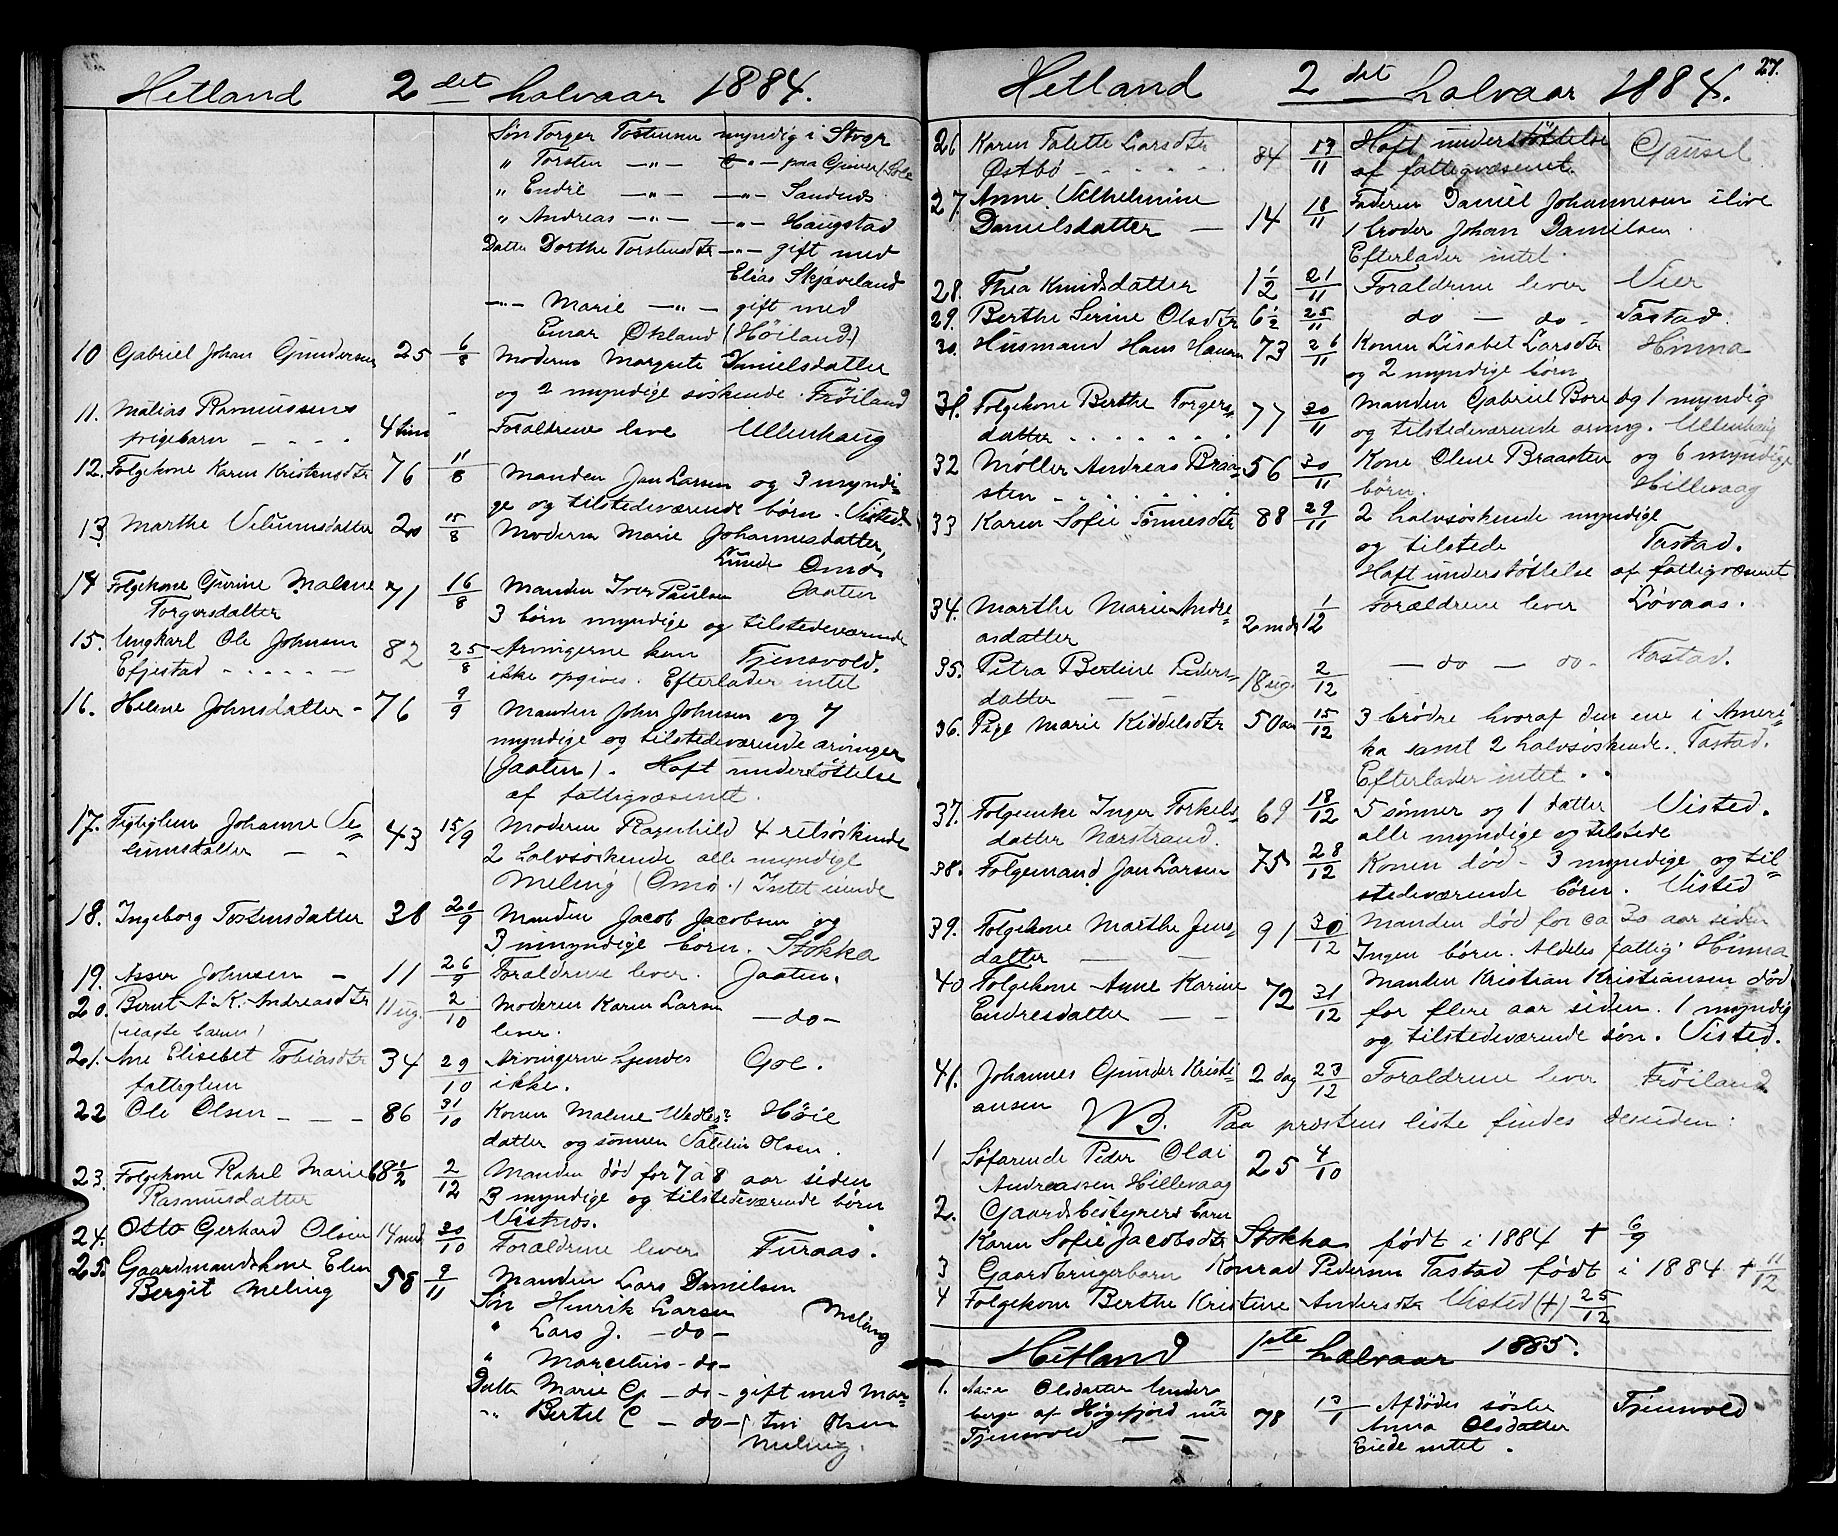 Hetland 2det halvaar 1884.
Søn Torger Tostensen myndig i Stvgr
" Torsten —"— —"— paa Grimer/Sole
" Endre —"— —"— Sandnæs
" Andreas —"— —"— Haugstad
Datter Dorthe Torstensdtr —"— gift med
Elias Skjæveland
—"— Marie —"— gift med
Einar Økland (Høiland)
10 Gabriel Johan Gundersen 25 6/8 Moderen Margrete Danielsdatter
og 2 myndige søskende. Frøiland
11. Malias Rasmussens
pigebarn - - - - 4 tim - Forældrene leve Ullenhaug
12. Folgekone Karen Kristensdtr 76 11/8 Manden Jan Larsen og 3 myndi-
ge og tilstedeværende børn. Visted
13. Marthe Velumsdatter 20 15/8 Moderen Marie Johannesdatter,
Lunde Omø
14 Folgekone Gurine Malene 71 16/8 Manden Iver Paulsen Jaaten
Torgersdatter 3 børn myndige og tilstedeværende
15. Ungkarl Ole Johnsen 82 25/8 Arvingerne kan Tjensvold.
Efjestad - - - - - ikke opgives. Efterlader intet
16. Helene Johnsdatter - 76 9/9 Manden John Johnsen og 7
myndige og tilstedeværende arvinger
(Jaaten). Haft understøttelse
af fattigvæsenet.
17. Fattiglem Johanne Ve= 43 15/9 Moderen Ragnhild 4 retsøskende
lumsdatter — - 2 halvsøskende alle myndige
Meling (Omø.) Intet eiende
18. Ingeborg Tostensdatter 38 20/9 Manden Jacob Jacobsen og
3 umyndige børn. Stokka
19. Asser Johnsen - 11 26/9 Forældrene lever. Jaaten.
20. Bernt A. K. Andreasdtr 11 ug. 2/10 Moderen Karen Larsen —do—
(uægte barn) lever.
21. Ane Elisebet Tobiasdtr 34 29/10 Arvingerne kjendes Goe.
fattiglem ikke.
22 Ole Olsen - - - 86 31/10 Konen Malene Wedles= Høie
datter og sønnen Olsen.
23. Folgekone Rakel Marie 68½ 2/12 Manden død for 7 à 8 aar siden
Rasmusdatter 3 myndige og tilstedeværende børn
Vistnes.
24. Otto Gerhard Olsen 14 mnd 30/10 Forældrene lever Furaas.
25. Gaardmandskone Elen 58 9/11 Manden Lars Danielsen
Bergit Meling Søn Henrik Larsen (Meling
" Lars J. —do—
" Marcelius —do—
Datter Marie G —do— gift med Mar=
—"— Bertel C —do— tin Olsen
Meling.
Hetland 2det halvaar 1884. 27.
26 Karen Talette Larsdtr 84 17/11 Haft understøttelse Gausel
Østbø - - - - - - af fattigvæsenet.
27. Anne Vilhelmine 14 18/11 Faderen Daniel Johannesen ilive
Danielsdatter — 1 broder Johan Danielsen.
Efterlader intet.
28. Thea Knudsdatter 1½ 21/11 Forældrene lever Vier
29. Berthe Serine Olsdtr 6½ 25/11 do — do - Tastad.
30. Husmand Hans Hansen 73 26/11 Konen Lisabet Larsdtr Hinna
og 2 myndige børn
31. Folgekone Berthe Torgers= 77 30/11 Manden Gabriel Bore og 1 myndig
datter . . . . . . og tilstedeværende arving. Ullenhaug
32 Møller Andreas Braa= 56 30/11 Kone Olene Braasten og 6 myndige
sten - . . . . . . børn. Hillevaag
33 Karen Sofie Tønnesdtr 88 29/11 2 halvsøskende myndige
og tilstede Tastad.
Haft understøttelse af fattigvæsenet
34. Marthe Marie Andre= 2 mdr 1/12 Forældrene lever Løvaas.
asdatter
35. Petra Bertine Peders= 18 ug. 2/12 — do — do - Tastad.
datter — —
36. Pige Marie Kiddelsdtr 50 aar 15/12 3 brødre hvoraf den ene i Ameri=
ka samt 2 halvsøskende. Tastad.
Efterlader intet. .
37. Folgeenke Inger Torkels= 69 18/12 5 sønner og 1 datter Visted.
datter Nærstrand. alle myndige og tilstede
38. Folgemand Jan Larsen 75 28/12 Konen død - 3 myndige og til=
stedeværende børn. Visted
39. Folgekone Marthe Jens= 91 30/12 Manden død for ca 30 aar siden
datter — — Ingen børn. Aldeles fattig. Hinna
40 Folgekone Anne Karine 72 31/12 Manden Kristian Kristiansen død
Endresdatter — — for flere aar siden. 1 myndig
og tilstedeværende søn. Visted.
41. Johannes Gunder Kristi= 2 dag 23/12 Forældrene lever Frøiland
ansen
NB. Paa præstens liste findes desuden:
1 Søfarende Peder Olai 25 4/10
Andreassen Hillevaag
2. Gaardsbestyrers barn
Karen Sofie Jacobsdtr Stokka født i 1884 + 6/9
3 Gaardbrugerbarn Konrad Pedersen Tastad født i 1884 + 11/12
4 Folgekone Berthe Kristine Andersdtr Visted (+) 25/12
Hetland 1ste halvaar 1885.
1. Olsdatter Under=
berge af Høgsfjord nu 78 13/1 Afdødes søster Tjensvold
Tjensvold — — Anna Olsdatter
Eiede intet.